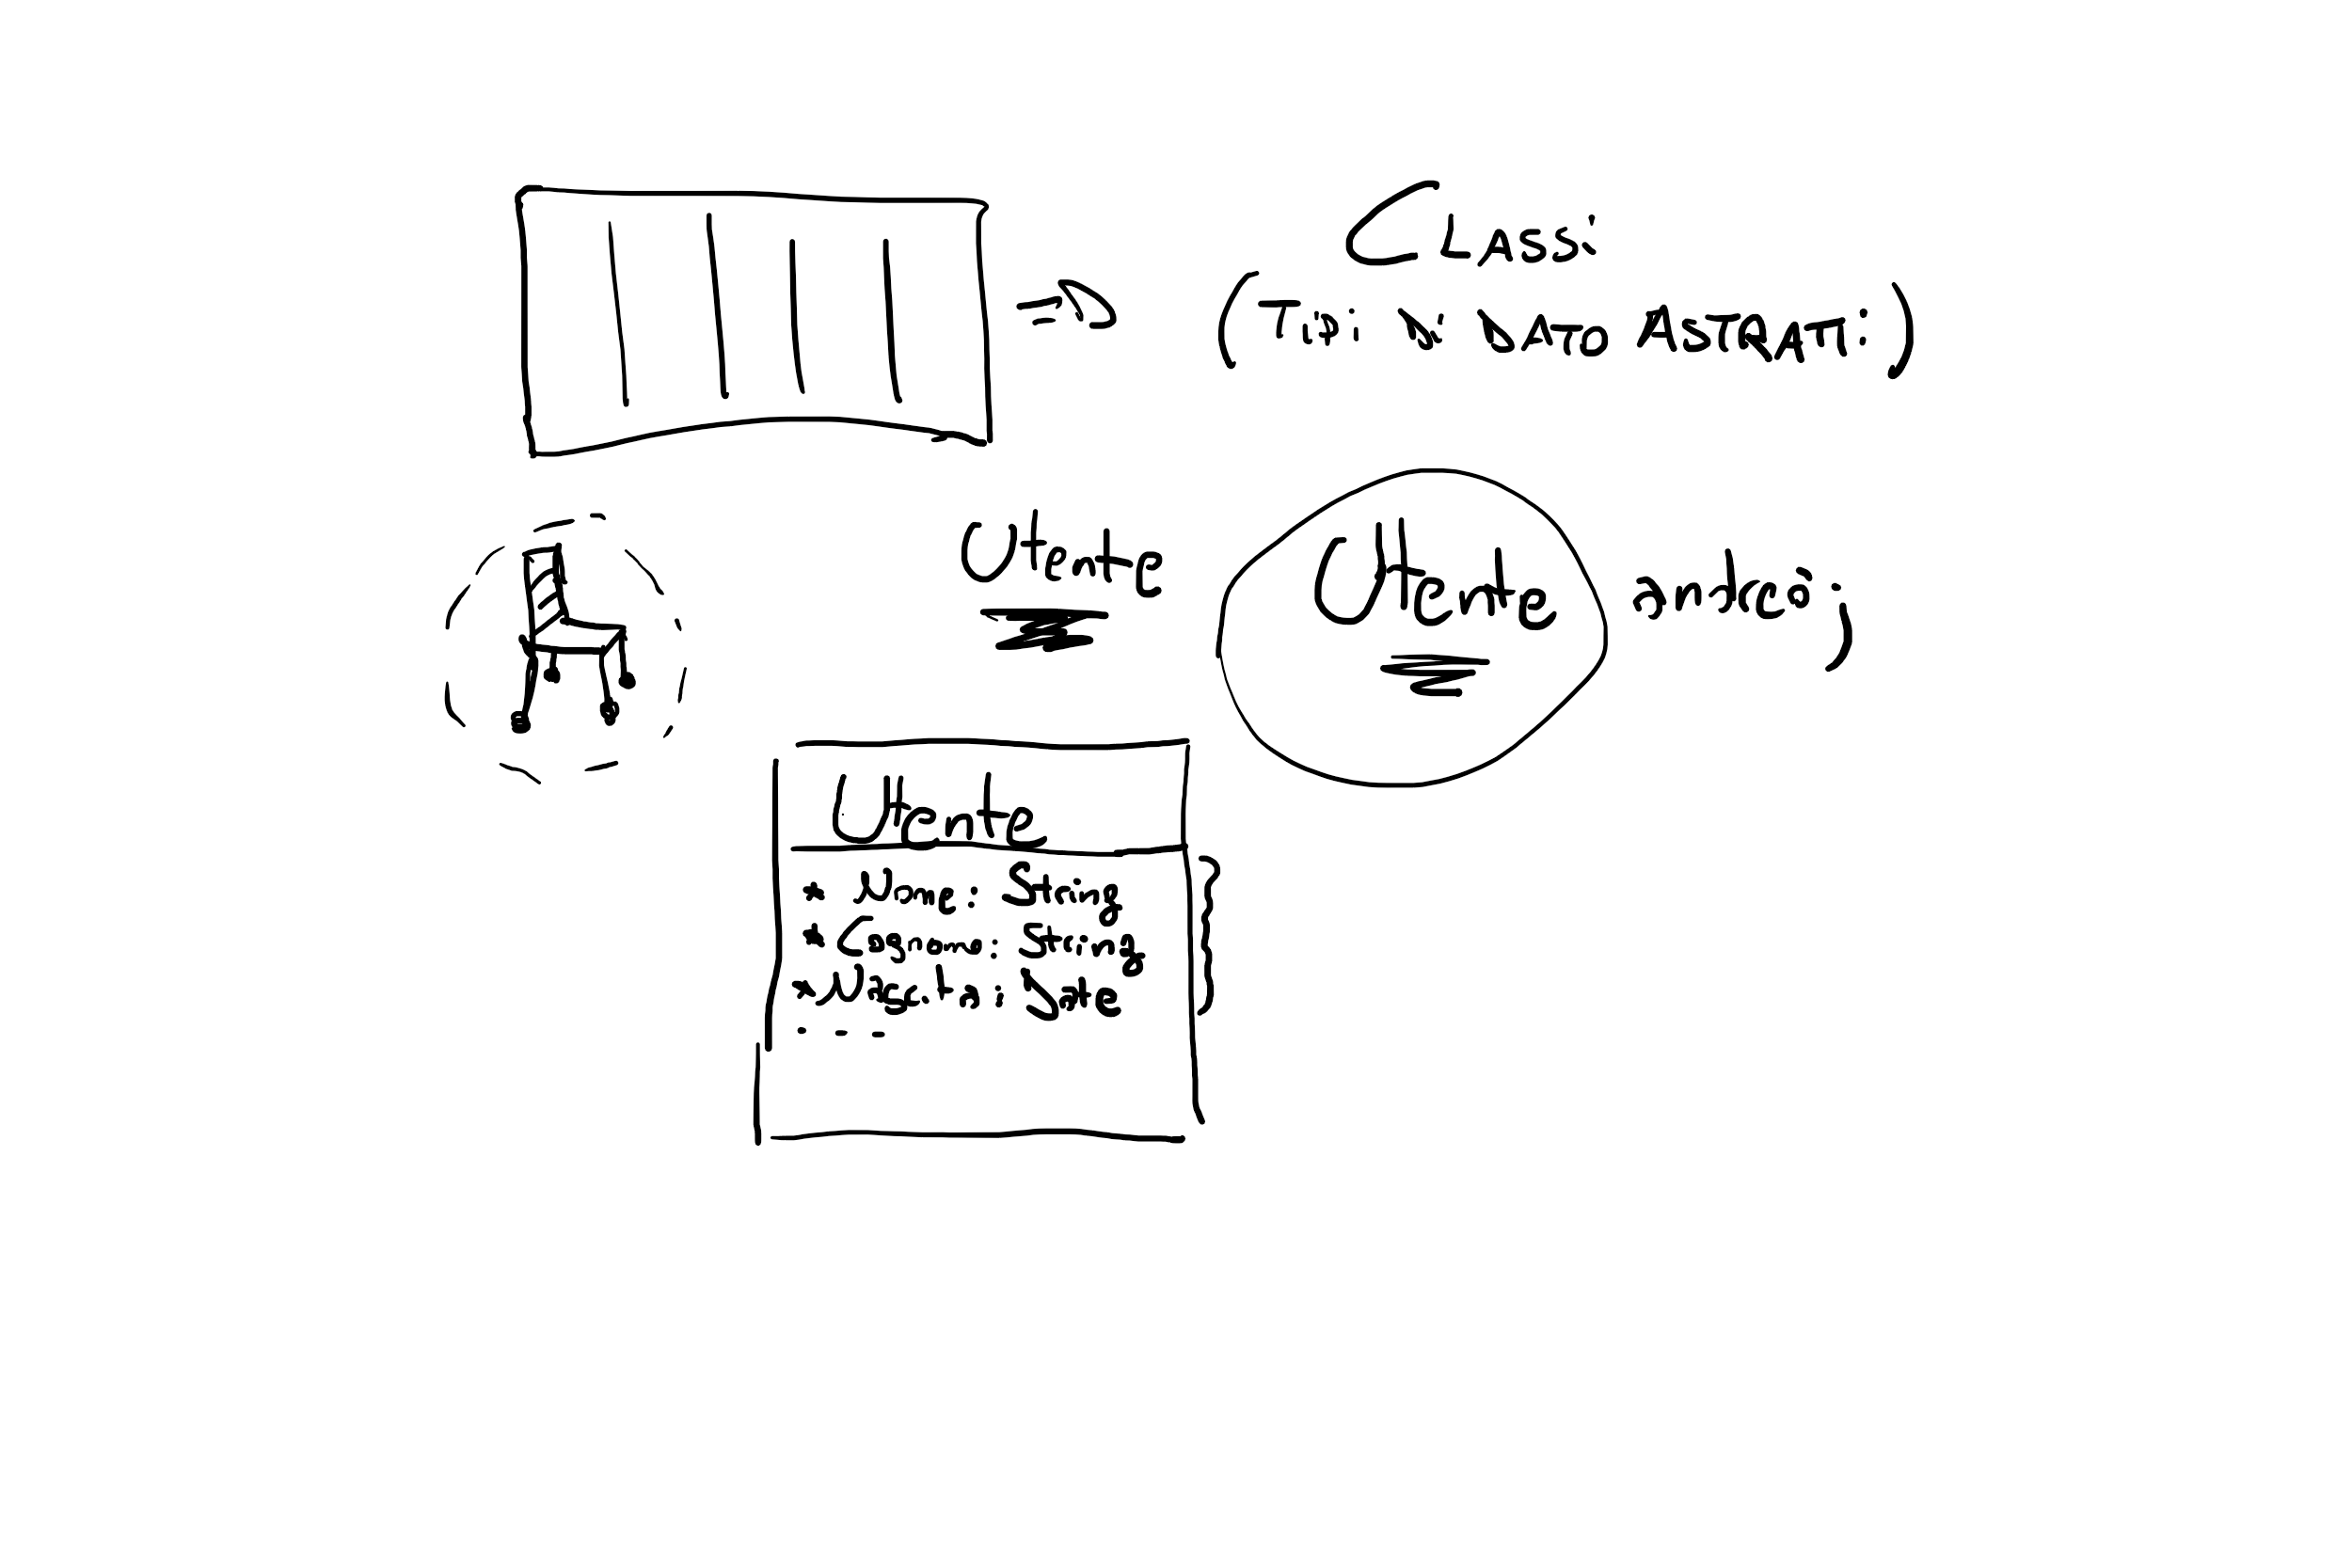 CLASSI
(TIPI DI DATO ASTRATTI)
Utente
Utente antoj;
Utente
* Nome: String
* Cognome: String